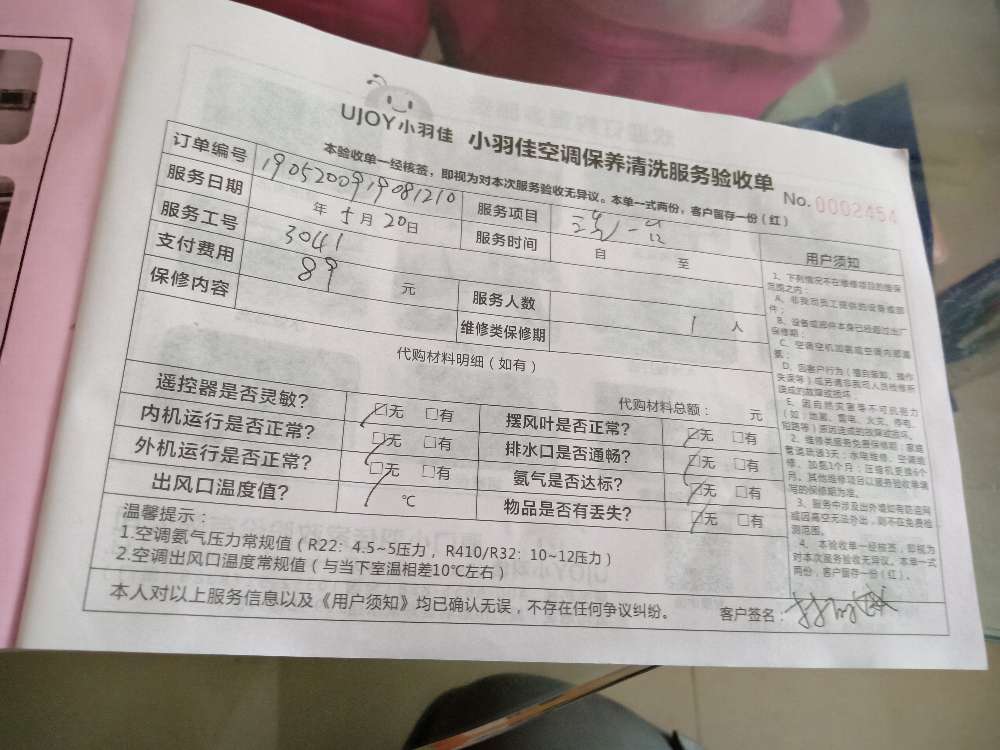 UJOY小羽佳 小羽佳空调保养清洗服务验收单
本验收单一经核签，即视为对本次服务验收无异议。本单一式两份，客户留存一份（红）
No. 0002454
订单编号 1905200919081210 服务项目
服务日期 年 5 月 20 日 服务时间 自 至
服务工号 3041
支付费用 89 元 服务人数 1 人
保修内容 维修类保修期
代购材料明细（如有）
代购材料总额： 元
遥控器是否灵敏？ □无 □有 摆风叶是否正常？ □无 □有
内机运行是否正常？ □无 □有 排水口是否通畅？ □无 □有
外机运行是否正常？ □无 □有 氨气是否达标？ □无 □有
出风口温度值？ ℃ 物品是否有丢失？ □无 □有
温馨提示：
1.空调氨气压力常规值（R22：4.5~5压力，R410/R32：10~12压力）
2.空调出风口温度常规值（与当下室温相差10℃左右）
本人对以上服务信息以及《用户须知》均已确认无误，不存在任何争议纠纷。 客户签名：
用户须知
1、下列情况不在维修项目的维保
范围之内：
A、非我司员工提供的设备或部
件；
B、设备或部件本身已经超过出厂
保修期；
C、空调空机加氨或空调内部漏
氨；
D、因客户行为（擅自拆卸、操作
失误等）或另请非我司人员维修所
造成的故障或损坏；
E、因自然灾害等不可抗力
（如：地震、雷电、火灾、停电、
短路等）原因造成的故障或损坏。
2、维修类服务免费保修期：家庭
管道疏通3天；水电维修、空调维
修、加氨3个月；压缩机更换6个
月。其他维修项目以服务验收单填
写的保修期为准。
3、服务中涉及出外墙如有防盗网
或因高空无法外出，则不在免费检
测范围。
4、本验收单一经核签，即视为
对本次服务验收无异议。本单一式
两份，客户留存一份（红）。